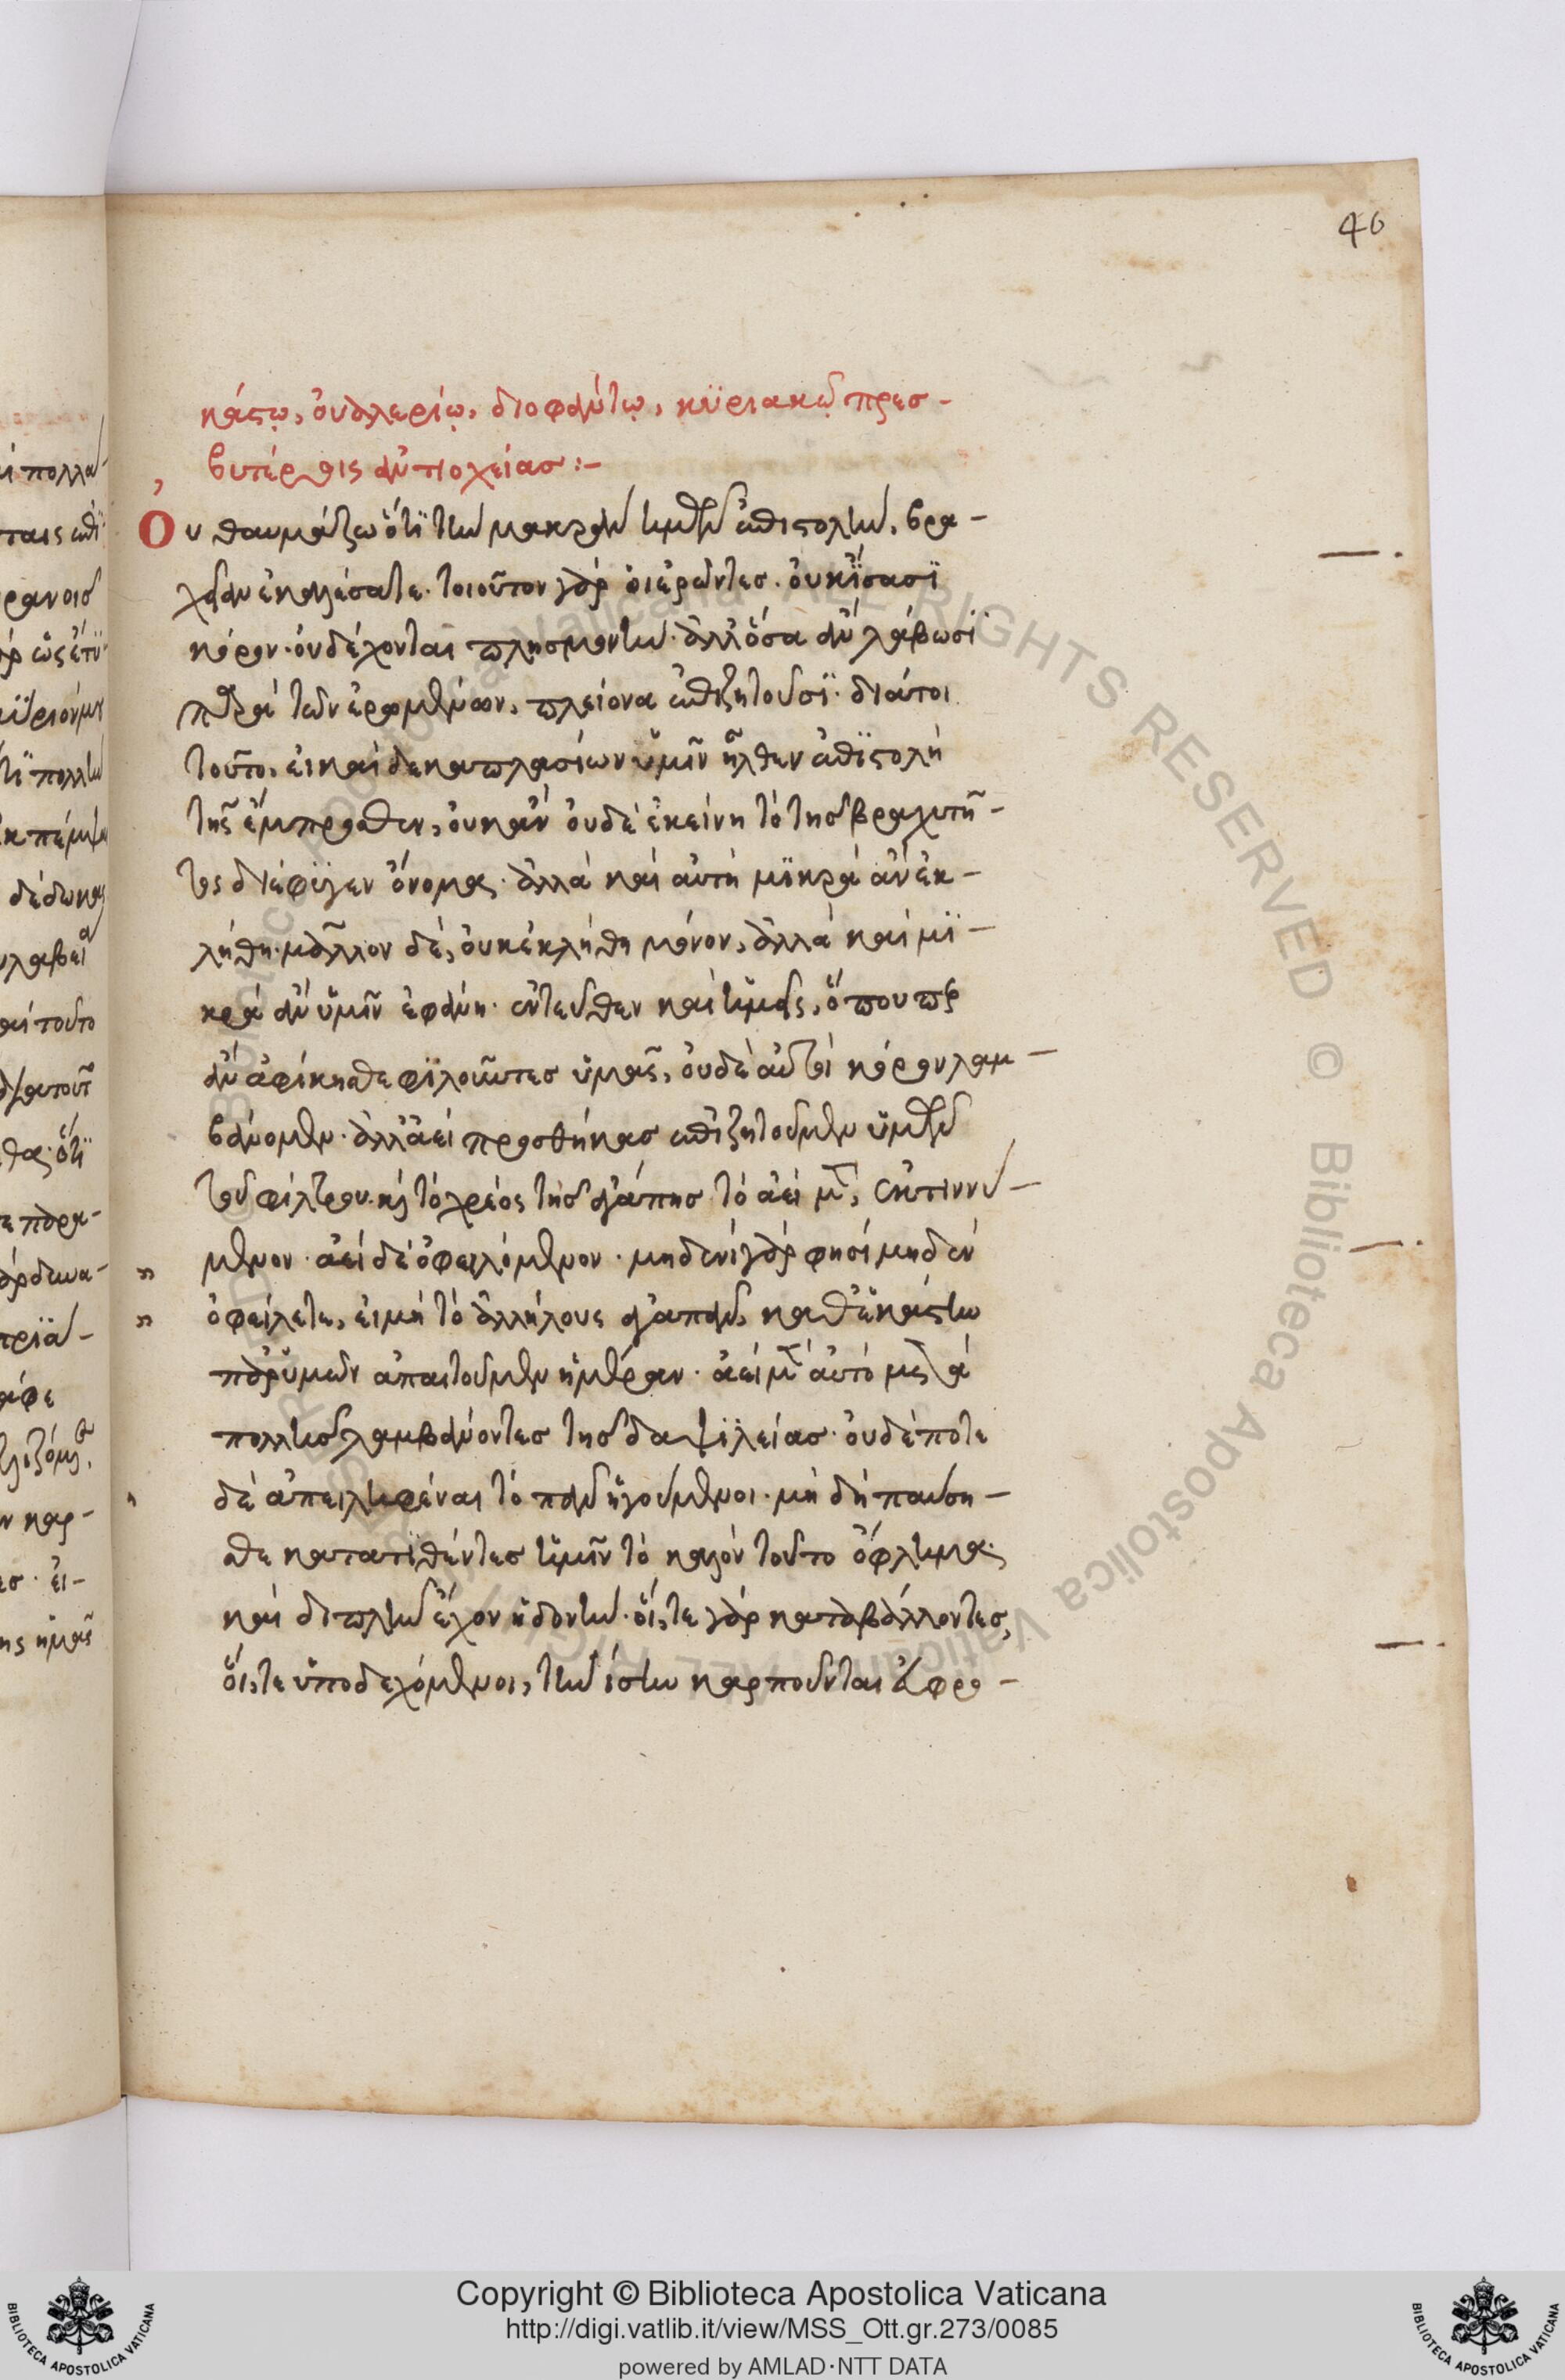 40
κάστω, οὐαλερίω, διοφάντω, κϋριακῶ πρεσ-
βυτέροις ἀντιοχείασ:-
Οὐ θαυμάζω ὅτϊ τὴν μακρὰν ἡμῶν ἐπιστολὴν, βρα-
χεῖαν ἐκαλέσατε. τοιοῦτον γὰρ ὁι ἐρῶντεσ. ὀυκ ἴσασϊ
κόρον. ὀυ δέχονται πλησμονὴν. ἀλλ' ὅσα ἂν λάβωσϊ
παρὰ τῶν ἐρωμένων, πλείονα ἐπιζητοῦσϊ. διάτοι
τοῦτο, ἐι καὶ δεκαπλασίων ὑμῖν ἦλθεν ἐπϊστολὴ
τῆς ἔμπροσθεν, ὀυκ ἂν ὀυδὲ ἐκείνη τὸ τῆσ βραχυτῆ-
τος διέφϋγεν ὄνομα. ἀλλὰ καὶ αὐτὴ μϊκρὰ ἂν ἐκ-
λήθη. μᾶλλον δὲ, ὀυκ ἐκλήθη μόνον, ἀλλὰ καὶ μϊ-
κρὰ ἂν ὑμῖν ἐφάνη. ἐντεῦθεν καὶ ἡμᾶς, ὅπου περ
ἂν ἀφίκησθε φϊλοῦντεσ ὑμᾶς, ὀυδὲ αὐτοὶ κόρον λαμ-
βάνομεν. ἀλλ' ἀεὶ προσθήκασ ἐπιζητοῦμεν ὑμῶν
τοῦ φίλτρου. κὶ τὸ χρέος τῆσ ἀγάπησ τὸ ἀεὶ μὲν, ἐκτιννύ-
μενον. ἀεὶ δὲ ὀφειλόμενον. μηδενὶ γὰρ φησὶ μηδὲν
ὀφείλετε, ἐι μὴ τὸ ἀλλήλους ἀγαπᾶν, καθ' ἑκάστην
παρ' ὑμῶν ἀπαιτοῦμεν ἡμέραν. ἀεὶ μὲν αὐτὸ μετὰ
πολλῆσ λαμβάνοντεσ τῆσ δαψϊλείασ. ὀυδέποτε
δὲ ἀπειληφέναι τὸ πᾶν ἡγούμενοι. μὴ δὴ παύση-
σθε κατατϊθέντεσ ἡμῖν τὸ καλὸν τοῦτο ὄφλημα,
καὶ διπλῆν ἔχον ἡδονὴν. ὅι, τε γὰρ καταβάλλοντεσ,
ὅι, τε ὑποδεχόμενοι, τὴν ἴσην καρποῦνται ἐυφρο-
Copyright © Biblioteca Apostolica Vaticana
http://digi.vatlib.it/view/MSS_Ott.gr.273/0085
powered by AMLAD·NTT DATA